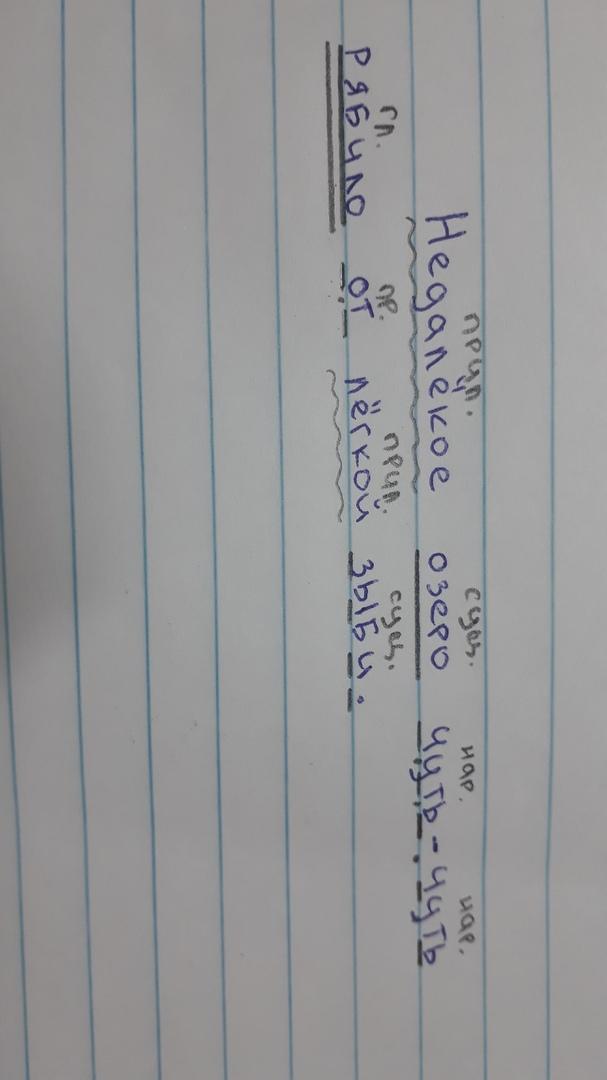 прил. сущ. нар. нар.
Недалёкое озеро чуть-чуть
гл. пр. прил. сущ.
рябило от лёгкой зыби.